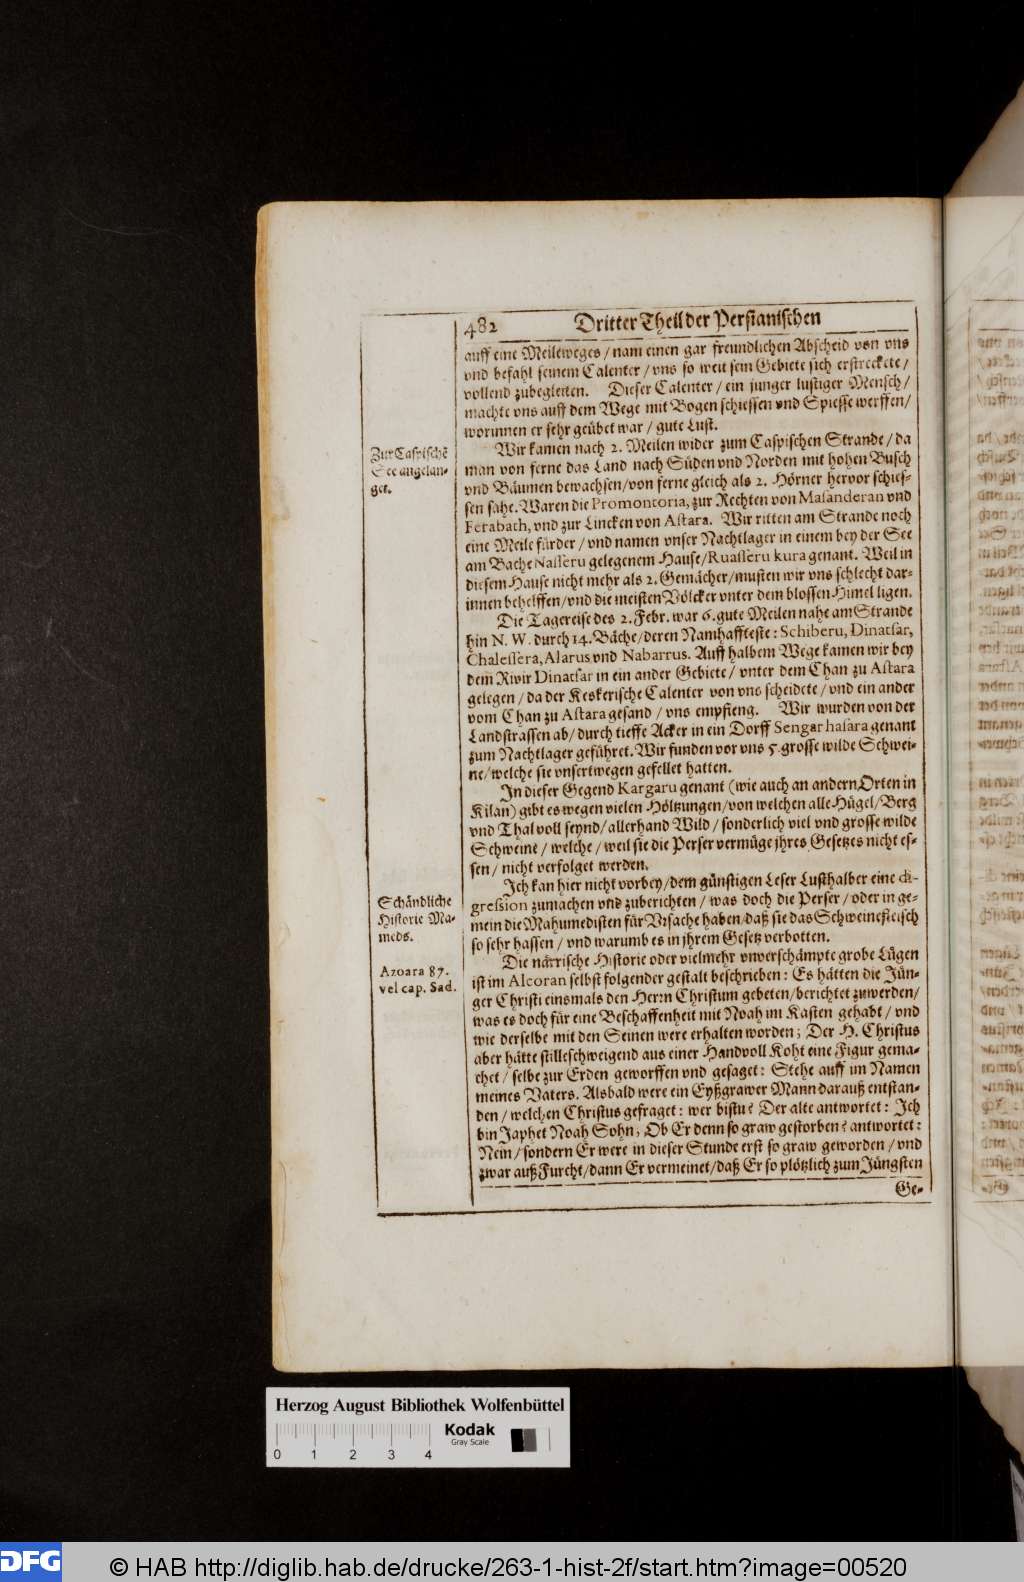 482 Dritter Theil der Persianischen
auff eine Meileweges / nam einen gar freundlichen Abscheid von vns
vnd befahl seinem Calenter / vns so weit sein Gebiete sich erstreckete /
vollend zubegleiten. Dieser Calenter / ein junger lustiger Mensch /
machte vns auff dem Wege mit Bogen schiessen vnd Spiesse werffen /
worinnen er sehr geübet war / gute Lust.
Zur Caspischẽ
See angelan-
get.
Wir kamen nach 2. Meilen wider zum Caspischen Strande / da
man von ferne das Land nach Süden vnd Norden mit hohen Busch
vnd Bäumen bewachsen / von ferne gleich als 2. Hörner hervor schies-
sen sahe. Waren die Promontoria, zur Rechten von Masanderan vnd
Ferabach, vnd zur Lincken von Astara. Wir ritten am Strande noch
eine Meile fürder / vnd namen vnser Nachtlager in einem bey der See
am Bache Nasseru gelegenem Hause / Ruasseru kura genant. Weil in
diesem Hause nicht mehr als 2. Gemächer / musten wir vns schlecht dar-
innen behelffen / vnd die meisten Völcker vnter dem blossen Himel ligen.
Die Tagereise des 2. Febr. war 6. gute Meilen nahe am Strande
hin N. W. durch 14. Bäche / deren Namhaffteste: Schiberu, Dinatsar,
Chalessera, Alarus vnd Nabarrus. Auff halbem Wege kamen wir bey
dem Rivir Dinatsar in ein ander Gebiete / vnter dem Chan zu Astara
gelegen / da der Keskerische Calenter von vns scheidete / vnd ein ander
vom Chan zu Astara gesand / vns empfieng. Wir wurden von der
Landstrassen ab / durch tieffe Acker in ein Dorff Sengar hasara genant
zum Nachtlager geführet. Wir funden vor vns 5. grosse wilde Schwei-
ne / welche sie vnsertwegen gefellet hatten.
In dieser Gegend Kargaru genant (wie auch an andern Orten in
Kilan) gibt es wegen vielen Höltzungen / von welchen alle Hügel / Berg
vnd Thal voll seynd / allerhand Wild / sonderlich viel vnd grosse wilde
Schweine / welche / weil sie die Perser vermüge jhres Gesetzes nicht es-
sen / nicht verfolget werden.
Schändliche
Historie Ma-
meds.
Ich kan hier nicht vorbey / dem günstigen Leser Lusthalber eine di-
gression zumachen vnd zuberichten / was doch die Perser / oder in ge-
mein die Mahumedisten für Vrsache haben / daß sie das Schweinefleisch
so sehr hassen / vnd warumb es in jhrem Gesetz verbotten.
Azoara 87.
vel cap. Sad.
Die närrische Historie oder vielmehr vnverschämpte grobe Lügen
ist im Alcoran selbst folgender gestalt beschrieben: Es hätten die Jün-
ger Christi einsmals den Herrn Christum gebeten / berichtet zuwerden /
was es doch für eine Beschaffenheit mit Noah im Kasten gehabt / vnd
wie derselbe mit den Seinen were erhalten worden; Der H. Christus
aber hätte stilleschweigend aus einer Handvoll Koht eine Figur gema-
chet / selbe zur Erden geworffen vnd gesaget: Stehe auff im Namen
meines Vaters. Alsbald were ein Eyßgrawer Mann darauß entstan-
den / welchen Christus gefraget: wer bistu? Der alte antwortet: Ich
bin Japhet Noah Sohn; Ob Er denn so graw gestorben? antwortet:
Nein / sondern Er were in dieser Stunde erst so graw geworden / vnd
zwar auß Furcht / dann Er vermeinet / daß Er so plötzlich zum Jüngsten
Ge-
Herzog August Bibliothek Wolfenbüttel
Kodak
Gray Scale
0 1 2 3 4
DFG
© HAB http://diglib.hab.de/drucke/263-1-hist-2f/start.htm?image=00520